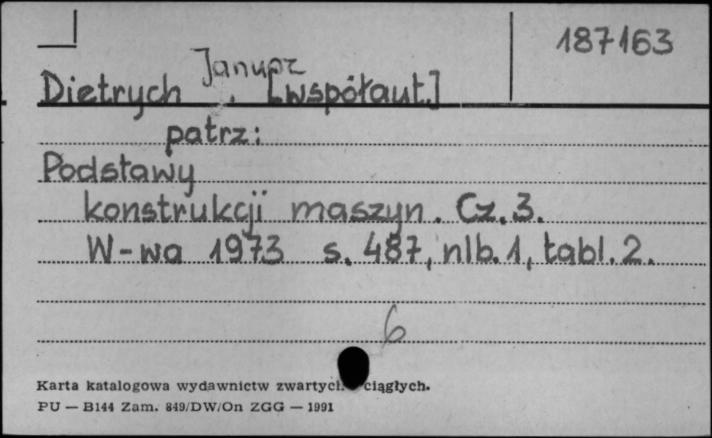 187163
Dietrych Janusz [współaut.]
patrz:
Podstawy
konstrukcji maszyn. Cz. 3.
W-wa 1973 s. 487, nlb. 1, tabl. 2.
6
Karta katalogowa wydawnictw zwartych ciągłych.
PU — B144 Zam. 849/DW/On ZGG — 1991